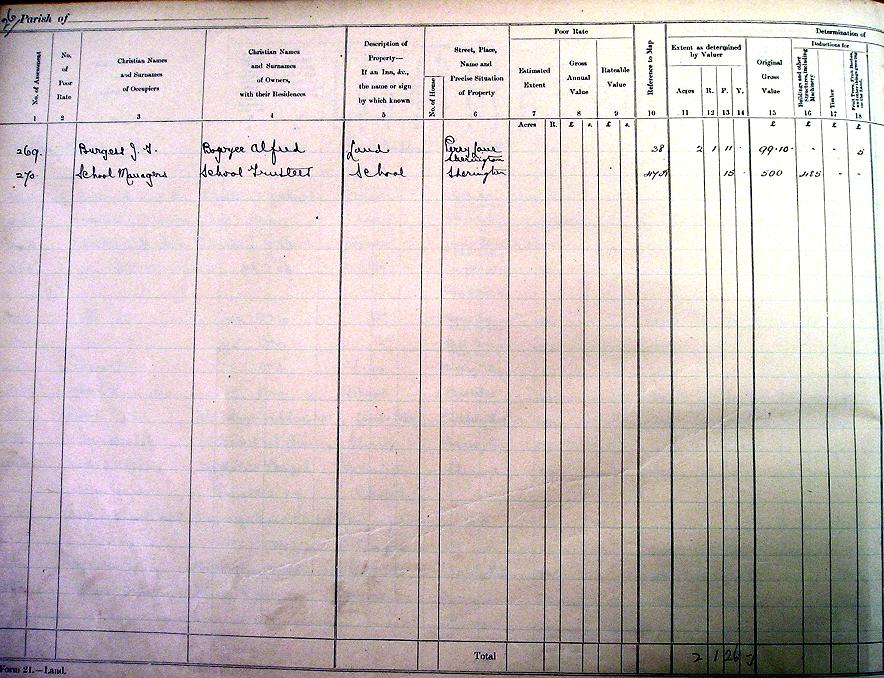 26 Parish of
No. of Assessment
No. of Poor Rate
Christian Names and Surnames of Occupiers
Christian Names and Surnames of Owners, with their Residences
Description of Property— If an Inn, &c., the name or sign by which known
No. of House
Street, Place, Name and Precise Situation of Property
Poor Rate
Estimated Extent
Gross Annual Value
Rateable Value
Reference to Map
Extent as determined by Valuer
Acres R. P. Y.
Original Gross Value
Determination of
Deductions for
Buildings and other Structures, including Machinery
Timber
1 2 3 4 5 6 7 8 9 10 11 12 13 14 15 16 17 18
Acres R. £ s. £ s. £ £ £ £
269. Burgess J. T. Alfred Land Perry Lane Sherington 38 2 1 11 · 99·10· - - 5
270 School Managers School Trustees School Sherington 15 · 500 485 - -
Total 2 1 26
Form 21.—Land.